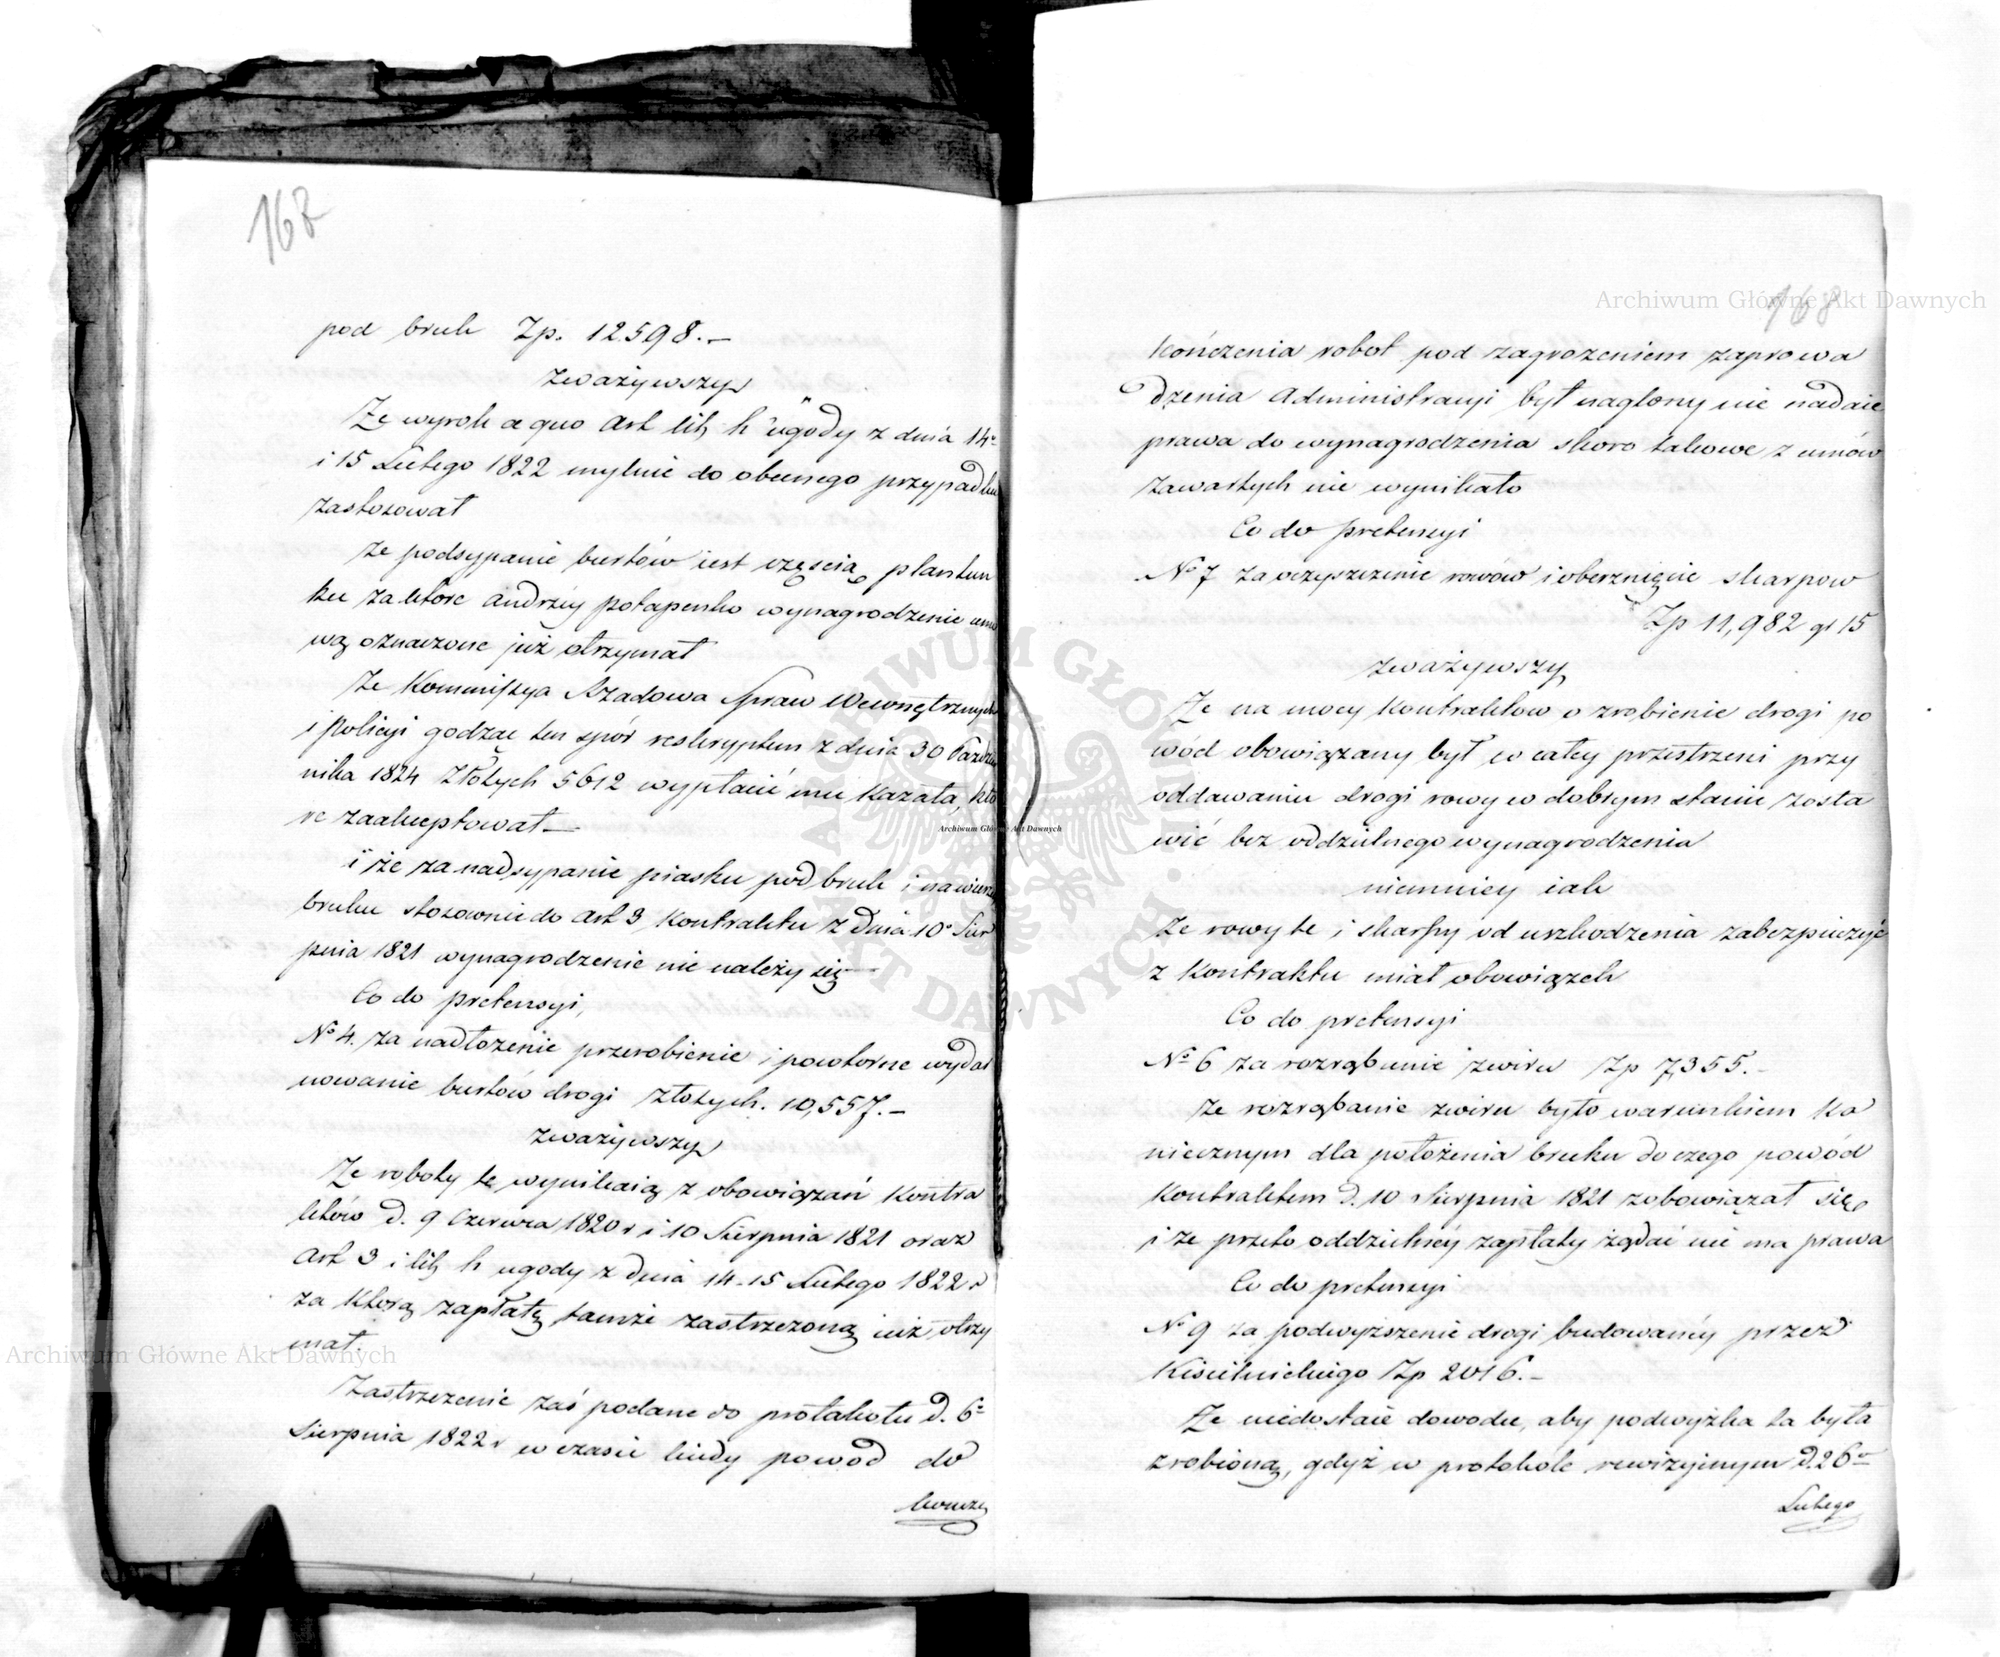 167
pod bruk Zp. 12598.—
zważywszy
Że wyrok a quo Art lit. h ugody z dnia 14º
i 15 Lutego 1822 mylnie do obecnego przypadku
zastosował
że podsypanie burtów iest częscią plantun
ku za które Andrzéy Potapenko wynagrodzenie umo
wą oznaczone już otrzymał
Że Kommissya Rządowa Spraw Wewnętrznych
i Policyi godząc ten spór reskryptem z dnia 30 Paździer
nika 1824 Złotych 5612 wypłacić mu kazała, któ
re zaakceptował —
i że za nadsypanie piasku pod bruk i na wierzch
bruku stosownie do Art 3 Kontraktu z dnia 10º Sier
pnia 1821 wynagrodzenie nie należy się —
Co do pretensyi,
Nº 4. za nadłożenie przerobienie i powtorne wydar
nowanie burtów drogi złotych. 10,557.—
zważywszy
Że roboty te wynikaią z obowiązań Kontra
któw d. 9 Czerwca 1820 r i 10 Sierpnia 1821 oraz
Art 3 i lit. h ugody z dnia 14-15 Lutego 1822 r
za którą zapłatę tamże zastrzezoną iuż otrzy
mał.
Zastrzezenie zaś podane do protokołu d. 6º
Sierpnia 1822 r w czasie kiedy powod do
kończe
168
kończenia robot pod zagrozeniem zaprowa
dzenia Administracyi był naglony nie nadaie
prawa do wynagrodzenia skoro takowe z umów
zawartych nie wynikało
Co do pretensyi
Nº 7 za oczyszczenie rowów i oberznięcie skarpow
Zp 11,982 gr 15
zważywszy
Że na mocy Kontraktow o zrobienie drogi po
wód obowiązany był w całey przestrzeni przy
oddawaniu drogi rowy w dobrym stanie zosta
wić bez oddzielnego wynagrodzenia
niemniey iak
Że rowy te i skarpy od uszkodzenia zabezpieczyć
z Kontraktu miał obowiązek
Co do pretensyi
Nº 6 za rozrąbanie żwiru Zp 7,355.—
że rozrąbanie zwiru było warunkiem ko
niecznym dla położenia bruku do czego powód
Kontraktem d. 10 Sierpnia 1821 zobowiązał się
i że przeto oddzielnéy zapłaty żądać nie ma prawa
Co do pretensyi
Nº 9 za podwyższenie drogi budowanéy przez
Kisielnickiego Zp 2016.—
Że niedostaie dowodu, aby podwyżka ta była
zrobioną, gdyż w protokole rewizyinym d. 26º
Lutego
Archiwum Główne Akt Dawnych
Archiwum Główne Akt Dawnych
Archiwum Główne Akt Dawnych
ARCHIWUM GŁÓWNE AKT DAWNYCH